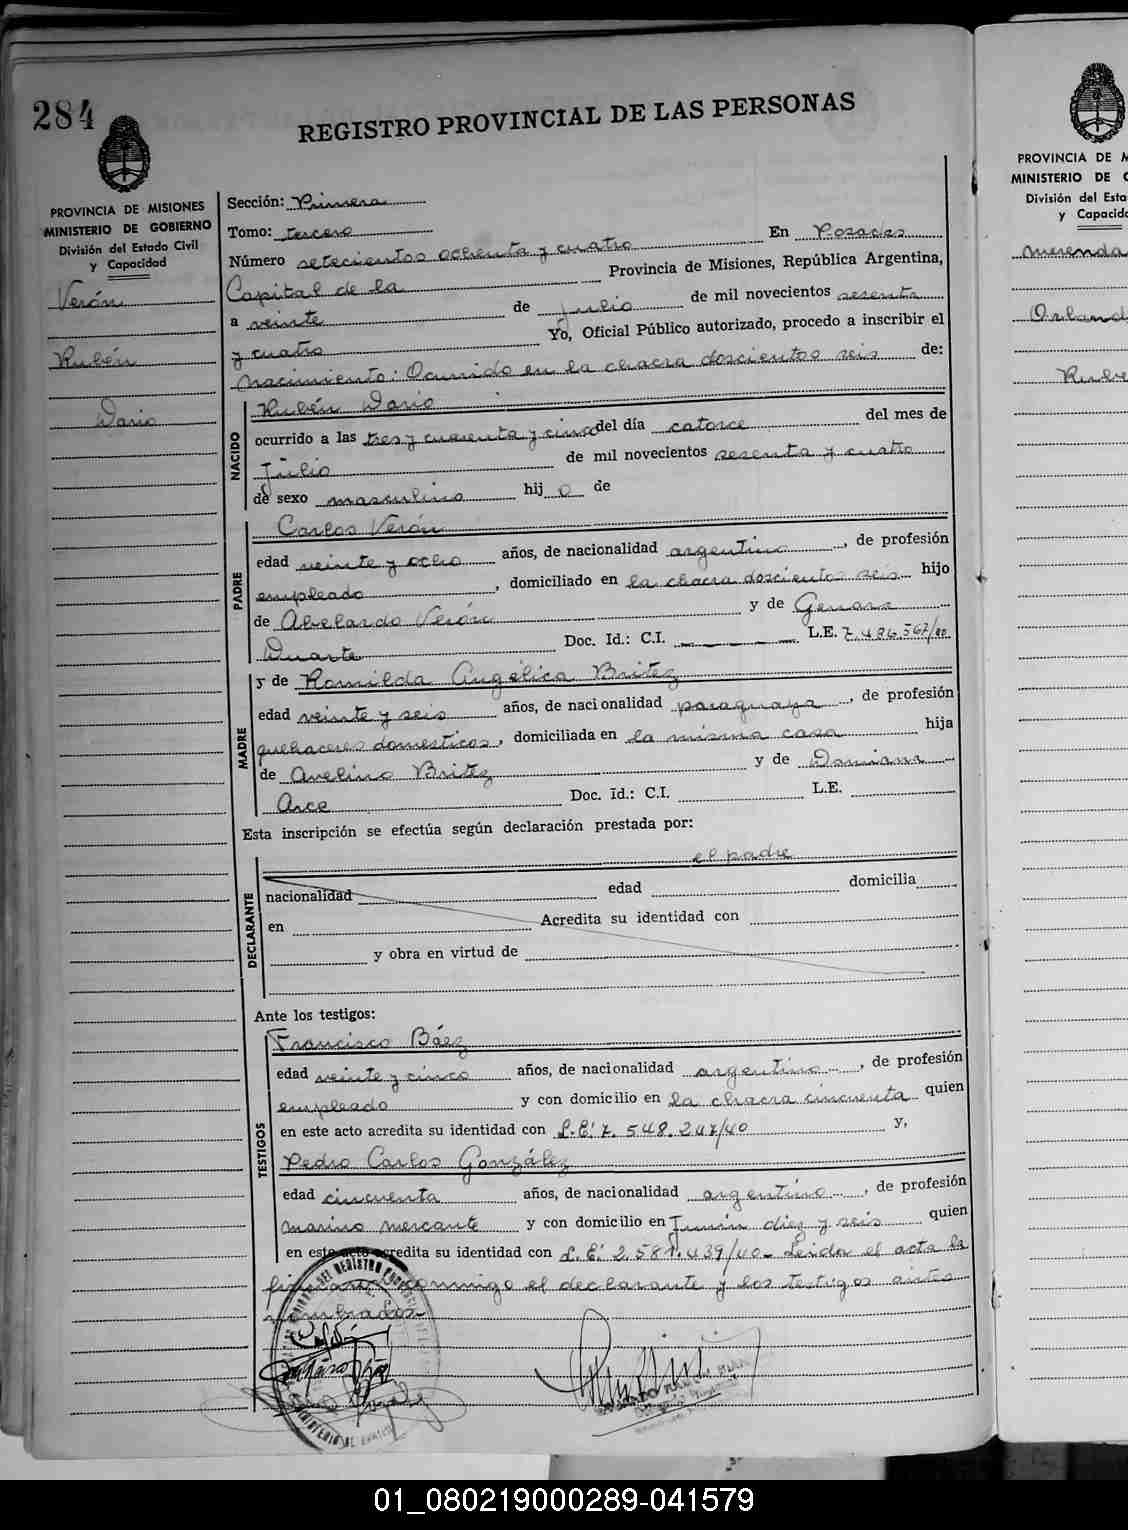 284
REGISTRO PROVINCIAL DE LAS PERSONAS
PROVINCIA DE MISIONES
MINISTERIO DE GOBIERNO
División del Estado Civil
y Capacidad
Verón
Rubén
Dario
Sección: Primera
Tomo: tercero
Número setecientos ochenta y cuatro En Posadas
Capital de la Provincia de Misiones, República Argentina,
a veinte de Julio de mil novecientos sesenta
y cuatro Yo, Oficial Público autorizado, procedo a inscribir el
nacimiento: Ocurrido en la chacra doscientos seis de:
NACIDO
Rubén Dario
ocurrido a las tres y cuarenta y cinco del día catorce del mes de
Julio de mil novecientos sesenta y cuatro
de sexo masculino hij o de
PADRE
Carlos Verón
edad veinte y ocho años, de nacionalidad argentino, de profesión
empleado, domiciliado en la chacra doscientos seis hijo
de Abelardo Verón y de Genara
Duarte Doc. Id.: C.I. L.E. 7.486.567/40
MADRE
y de Romilda Angélica Britez
edad veinte y seis años, de nacionalidad paraguaya, de profesión
quehaceres domesticos, domiciliada en la misma casa hija
de Avelino Britez y de Damiana
Arce Doc. Id.: C.I. L.E.
Esta inscripción se efectúa según declaración prestada por:
el padre
DECLARANTE
nacionalidad edad domicilia
en Acredita su identidad con
y obra en virtud de
Ante los testigos:
TESTIGOS
Francisco Báez
edad veinte y cinco años, de nacionalidad argentino, de profesión
empleado y con domicilio en la chacra cincuenta quien
en este acto acredita su identidad con L.E. 7.548.247/40 y,
Pedro Carlos González
edad cincuenta años, de nacionalidad argentino, de profesión
marino mercante y con domicilio en Junin diez y seis quien
en este acto acredita su identidad con L.E. 2.581.439/40- Leida el acta la
firmaron conmigo el declarante y los testigos antes
nombrados.-
PROVINCIA DE M
MINISTERIO DE G
División del Esta
y Capacid
Merenda
Orland
Rube
01_080219000289-041579